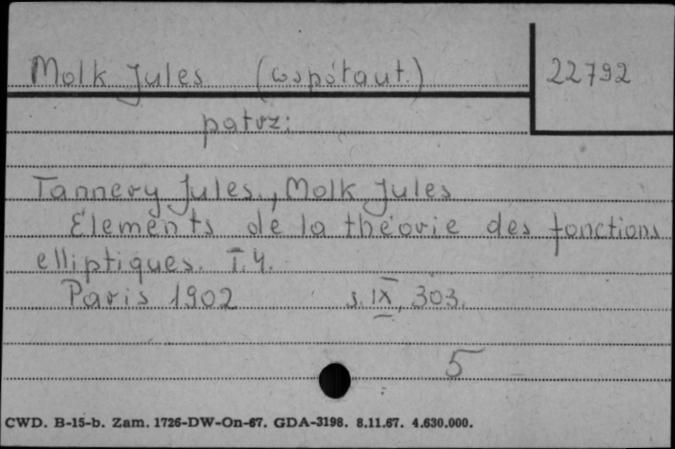 Molk Jules (współaut.) 22792
patrz:
Tannery Jules., Molk Jules
Élements de la théorie des fonctions
elliptiques. T.4.
Paris 1902 s. IX, 303.
5
CWD. B-15-b. Zam. 1726-DW-On-67. GDA-3198. 8.11.67. 4.630.000.